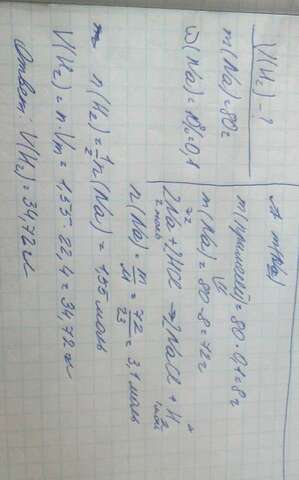 V(H₂) - ?
m(Na) = 80г
ω(Na) = 10% = 0,1
m(Na)
m(примесей) = 80 · 0,1 = 8г
m(Na) = 80 - 8 = 72г
2Na + 2HCl → 2NaCl + H₂
2 моль
1 моль
n(Na) = m/M = 72/23 = 3,1 моль
n(H₂) = 1/2 n(Na) = 1,55 моль
V(H₂) = n · Vm = 1,55 · 22,4 = 34,72 л
Ответ: V(H₂) = 34,72 л